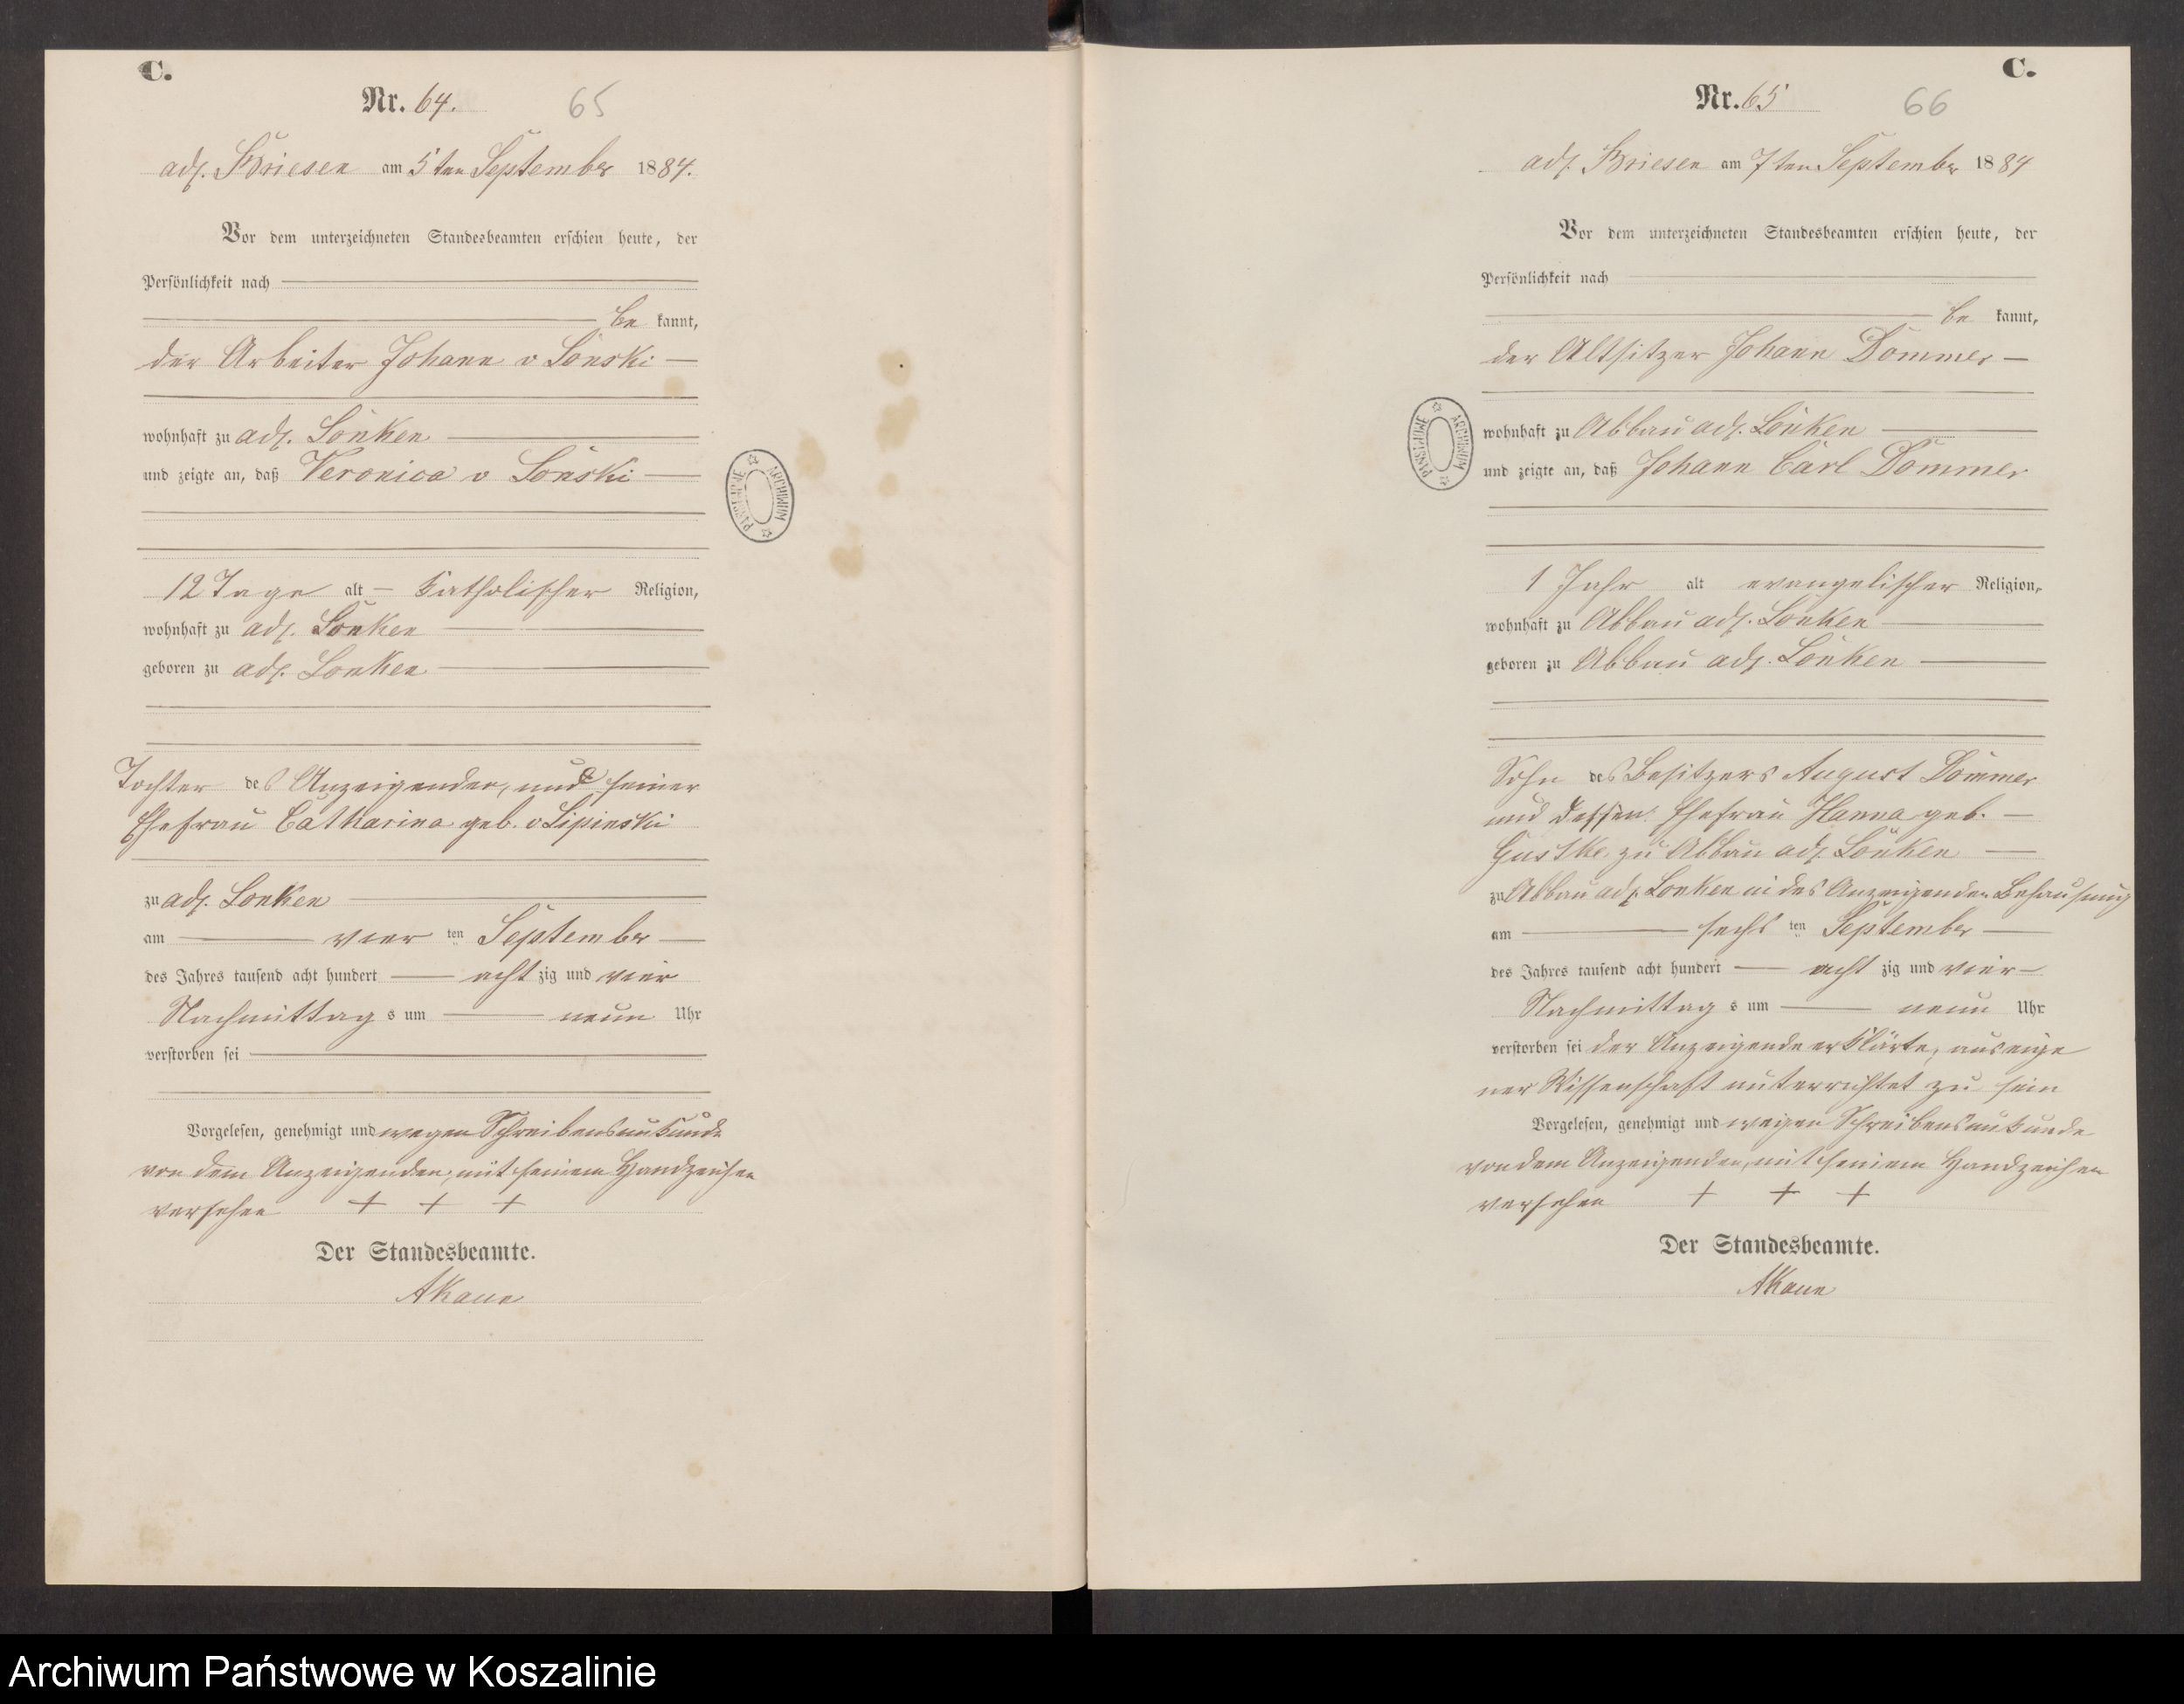 C.
Nr. 64. 65
adl. Briesen am 5ten September 1884.
Vor dem unterzeichneten Standesbeamten erschien heute, der
Persönlichkeit nach
be kannt,
der Arbeiter Johann v Lonski
wohnhaft zu adl. Lonken
und zeigte an, daß Veronica v Lonski
12 Tage alt katholischer Religion,
wohnhaft zu adl. Lonken
geboren zu adl. Lonken
Tochter des Anzeigenden, und seiner
Ehefrau Catharina geb. v Lipinski
zu adl. Lonken
am vier ten September
des Jahres tausend acht hundert acht zig und vier
Nachmittag s um neun Uhr
verstorben sei
Vorgelesen, genehmigt und wegen Schreibensunkunde
von dem Anzeigenden, mit seinem Handzeichen
versehen + + +
Der Standesbeamte.
AKaun
ARCHIWUM PAŃSTWOWE
C.
Nr. 65 66
adl. Briesen am 7ten September 1884
Vor dem unterzeichneten Standesbeamten erschien heute, der
Persönlichkeit nach
be kannt,
der Altsitzer Johann Dommer
wohnhaft zu Abbau adl. Lonken
und zeigte an, daß Johann Carl Dommer
1 Jahr alt evangelischer Religion,
wohnhaft zu Abbau adl. Lonken
geboren zu Abbau adl. Lonken
Sohn des Besitzers August Dommer
und dessen Ehefrau Hanna geb.
Gustke zu Abbau adl. Lonken
zu Abbau adl. Lonken in des Anzeigenden Behausung
am sechs ten September
des Jahres tausend acht hundert acht zig und vier
Nachmittag s um neun Uhr
verstorben sei der Anzeigende erklärte, aus eige
ner Wissenschaft unterrichtet zu sein
Vorgelesen, genehmigt und wegen Schreibensunkunde
von dem Anzeigenden, mit seinem Handzeichen
versehen + + +
Der Standesbeamte.
AKaun
ARCHIWUM PAŃSTWOWE
Archiwum Państwowe w Koszalinie